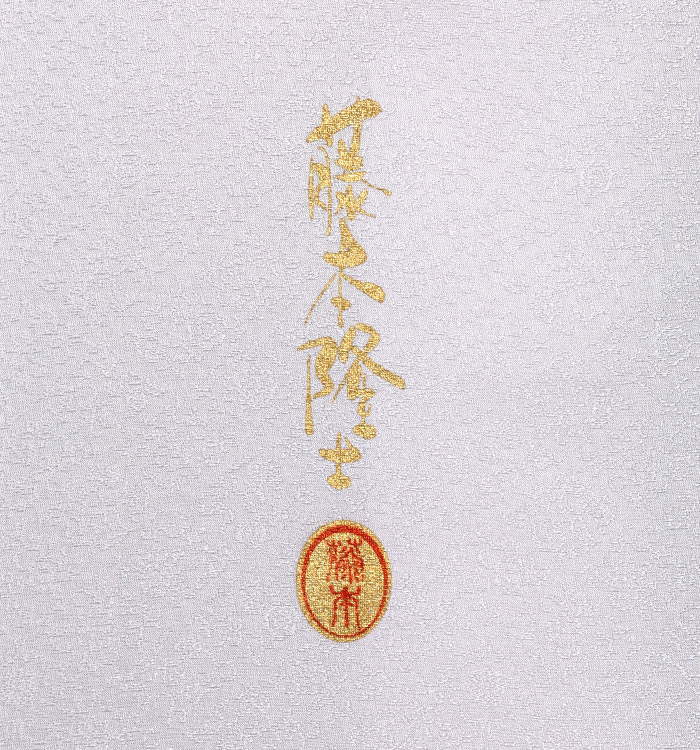 藤本隆士
藤本